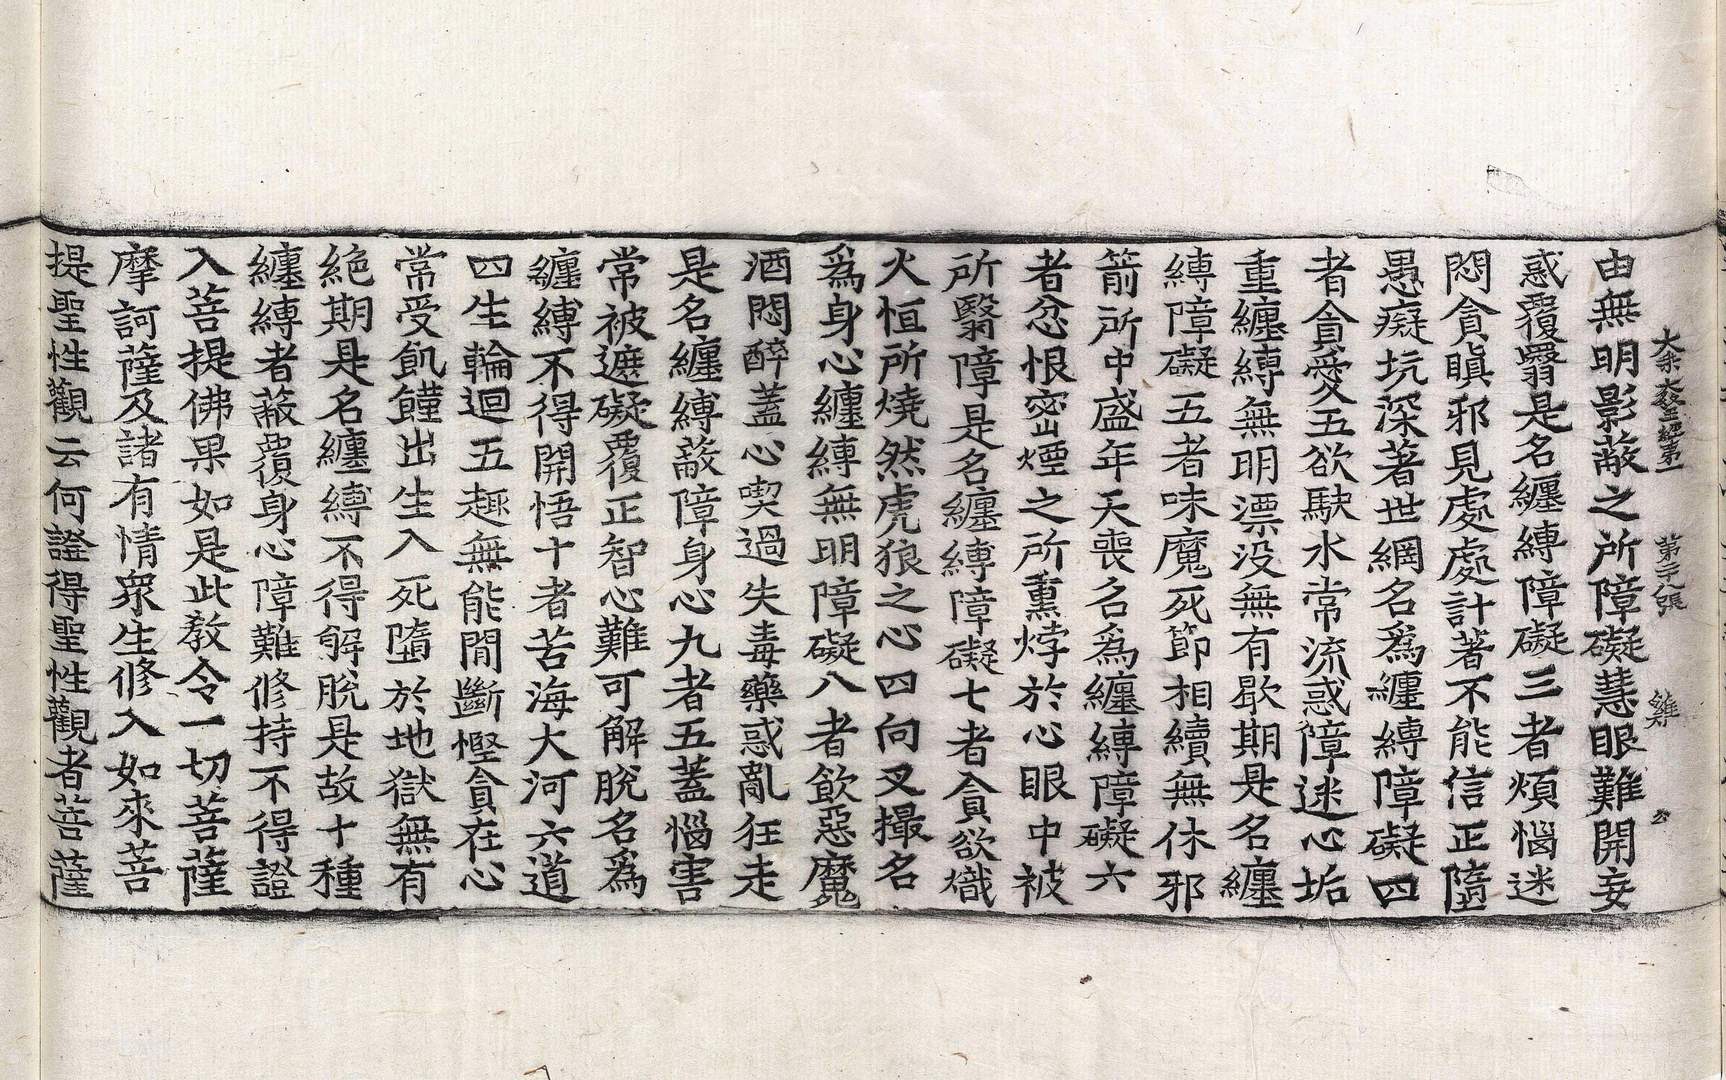 大乘大教王經第一 第二十八張 雞
由無明影蔽之所障礙慧眼難開妄
惑覆翳是名纏縛障礙三者煩惱迷
悶貪瞋邪見處處計著不能信正墮
愚癡坑深著世網名爲纏縛障礙四
者貪愛五欲駃水常流惑障迷心垢
重纏縛無明漂没無有歇期是名纏
縛障礙五者味魔死節相續無休邪
箭所中盛年夭喪名爲纏縛障礙六
者忿恨密煙之所熏㶿於心眼中被
所翳障是名纏縛障礙七者貪欲熾
火恒所燒然虎狼之心四向叉撮名
爲身心纏縛無明障礙八者飲惡魔
酒悶醉蓋心喫過失毒藥惑亂狂走
是名纏縛蔽障身心九者五蓋惱害
常被遮礙覆正智心難可解脫名爲
纏縛不得開悟十者苦海大河六道
四生輪迴五趣無能間斷慳貪在心
常受飢饉出生入死墮於地獄無有
絶期是名纏縛不得解脫是故十種
纏縛者蔽覆身心障難修持不得證
入菩提佛果如是此教令一切菩薩
摩訶薩及諸有情衆生修入如來菩
提聖性觀云何證得聖性觀者菩薩